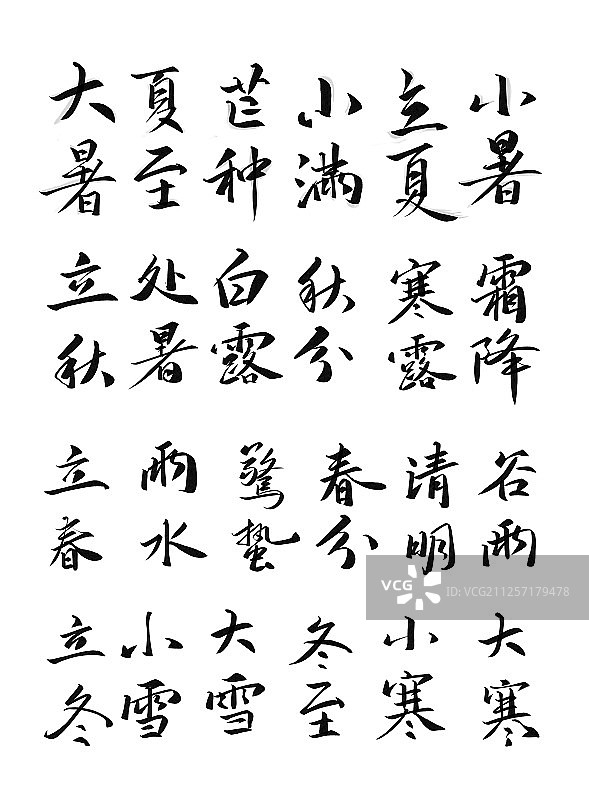 大暑
夏至
芒种
小满
立夏
小暑
立秋
处暑
白露
秋分
寒露
霜降
立春
雨水
驚蛰
春分
清明
谷雨
立冬
小雪
大雪
冬至
小寒
大寒
VCG
ID:VCG211257179478